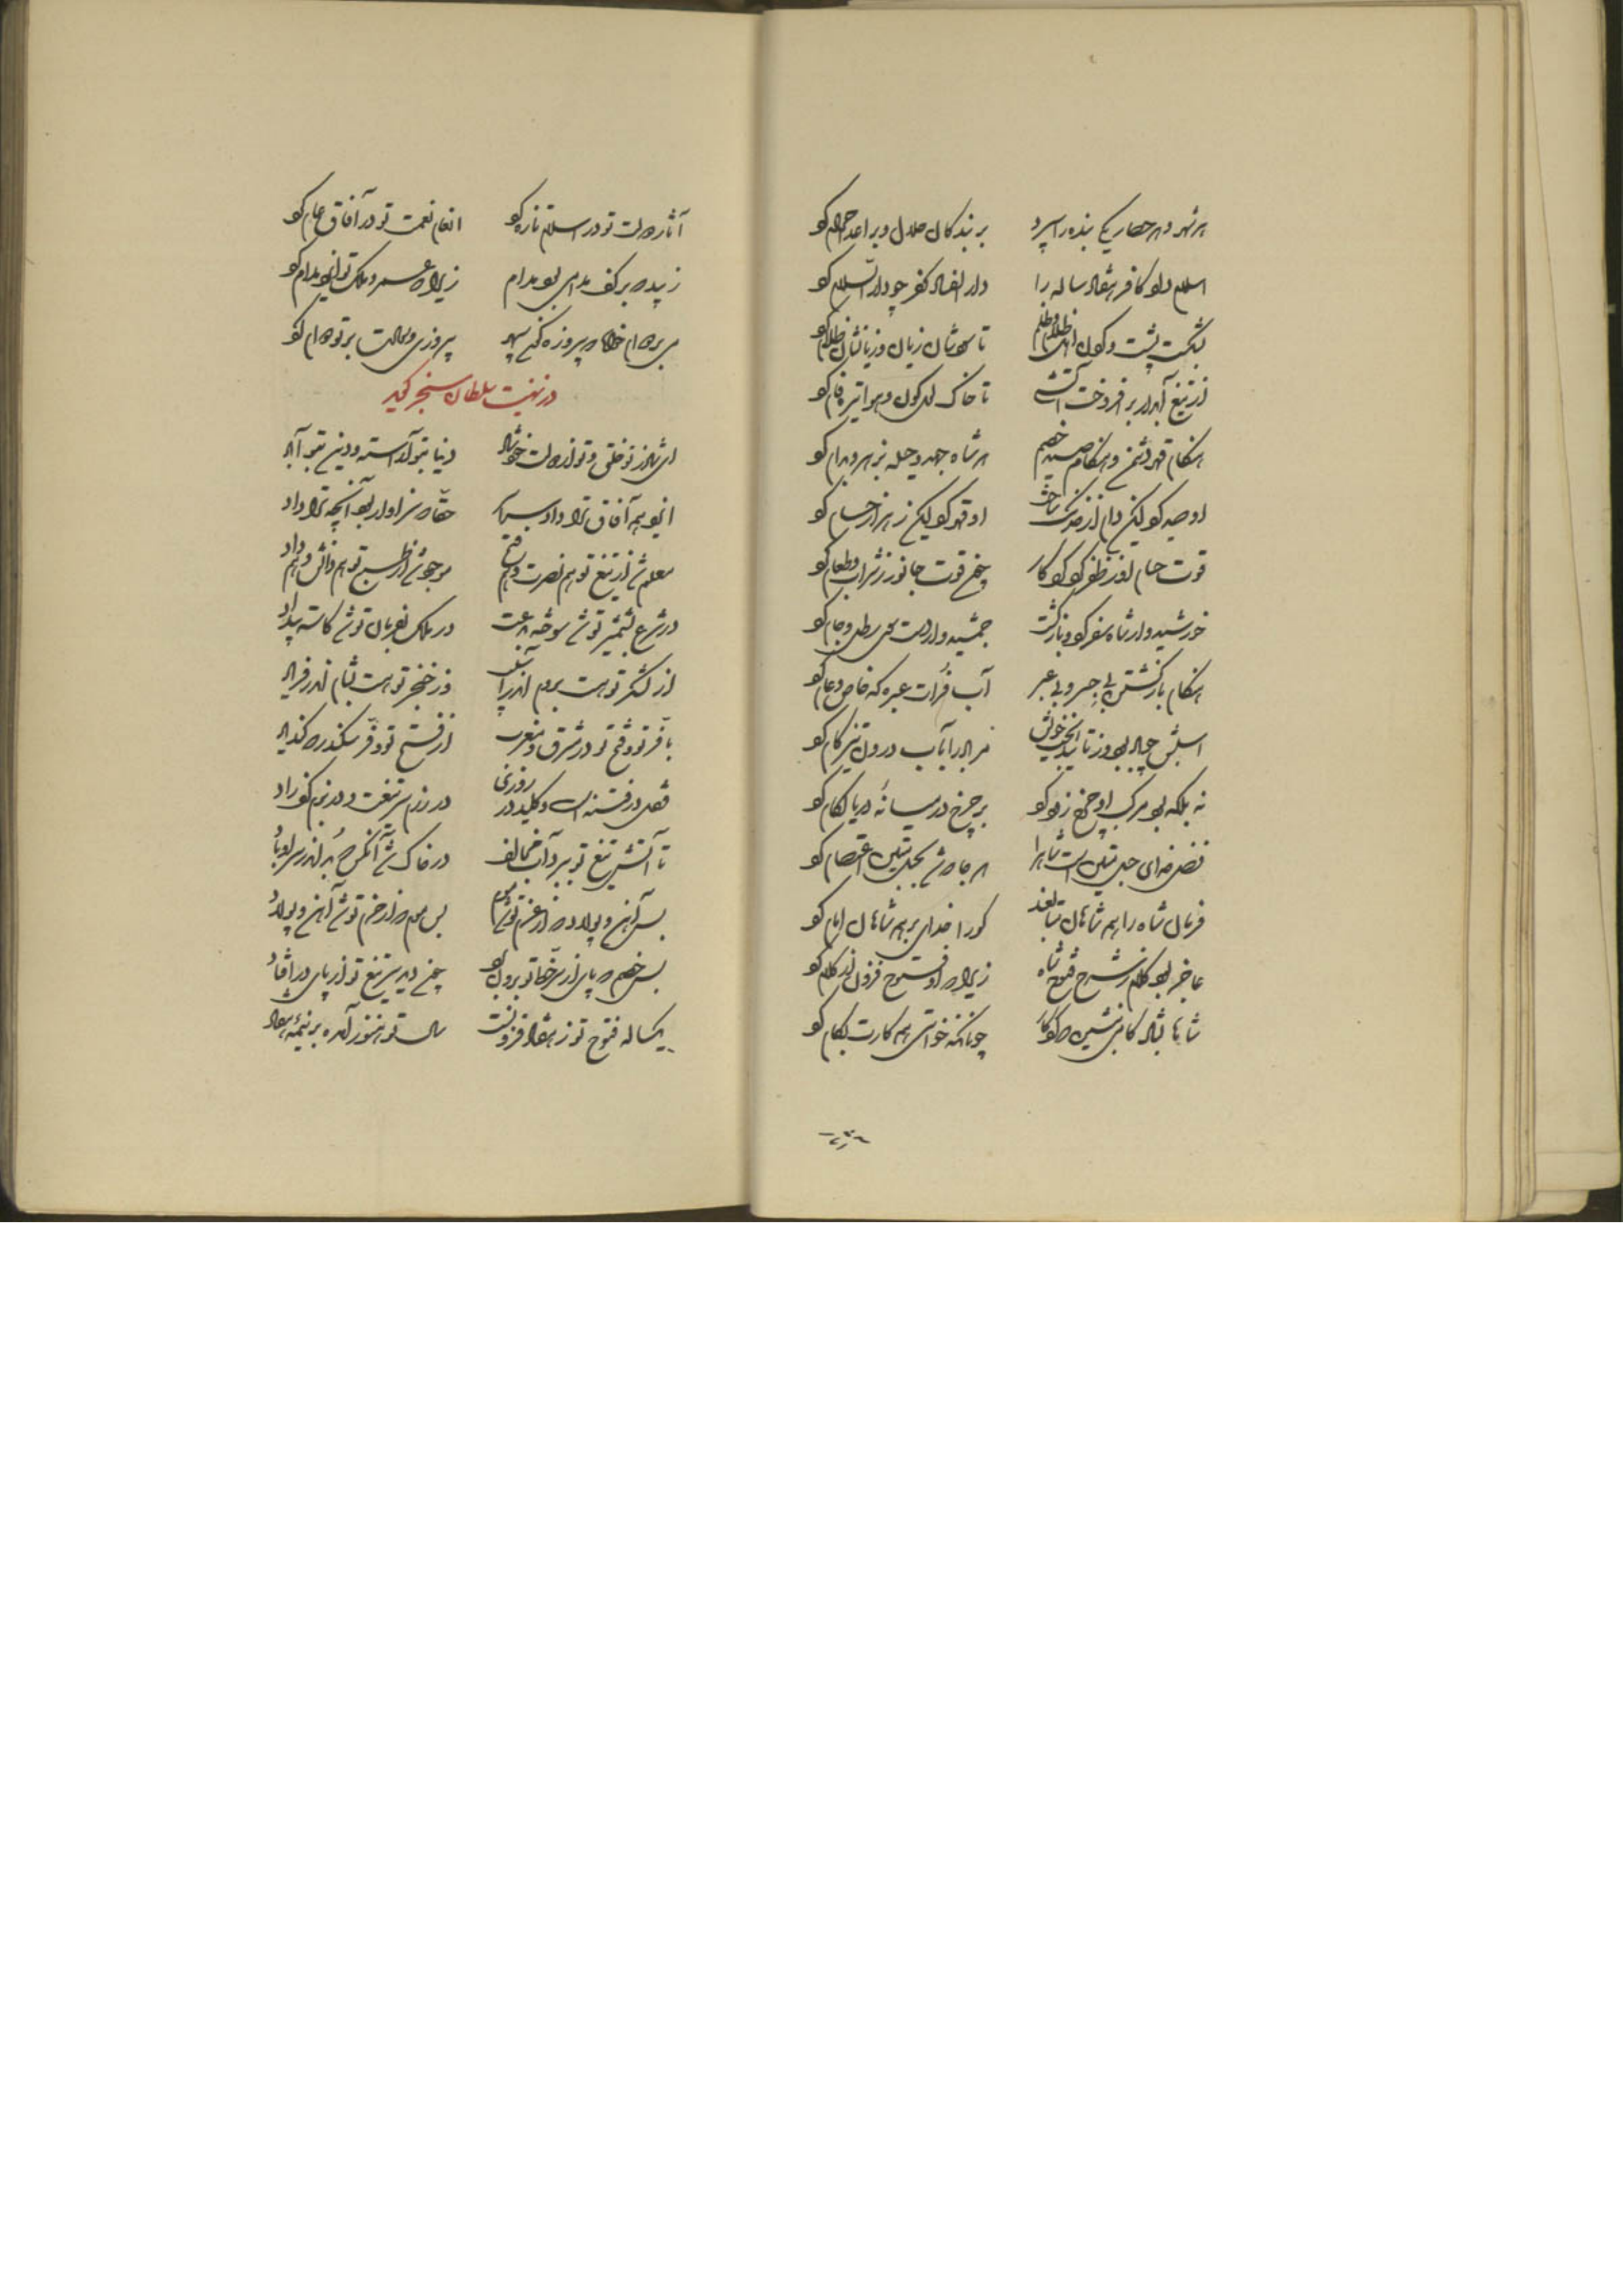 هر شهر و هر حصار یکی بنده را سپرد    بر بندگان حلال و بر اعدا حرام کرد
اسلام داد کافر هفتاد ساله را    دار الفساد کفر چو دار السلام کرد
بشکست پشت و گردن اهل ظلام و ظلم    تا سودشان زیان و زبانشان
از تیغ آبدار برافروخت آتشی    تا خاک لعل گون و هوا تیره فام کرد
هنگام قهر دشمن و هنگام صید خصم    هر شاه جهد و حیله
او صید کرد لیکن دام از خدنگ ساخت    او قهر کرد لیکن زهر از حسام کرد
قوت حسام او ز ظفر کرد کردگار    چون قوت جانور ز شراب و طعام کرد
خورشیدوار شاه سفر کرد و بازگشت    جمشیدوار دست رطل و جام کرد
هنگام بازگشتن بی جسر و بی عبر    آب فرات عبره گه خاص و عام کرد
اسبش چو باد بود ز تایید بخت خویش    مر باد را بآب درون تیزگام کرد
نه بلکه بود مرکب او چرخ زود گرد    بر چرخ در میانهٔ دریا لگام کرد
فضل خدای حبل متین است شاه را    هر جا که شد بحبل متین اعتصام کرد
فرمان شاه را همه شاهان متابعند    کو را خدای بر همه شاهان امام کرد
عاجز بود کلام ز شرح فتوح شاه    زیرا که او فتوح فزون از کلام کرد
شاها بشادکامی بنشین که کردگار    چونانکه خواستی همه کارت بکام کرد
آثار دولت تو در اسلام تازه کرد    انعام نعمت تو در آفاق عام کرد
زیبد که بر کف مدامی بود مدام    زیرا که عمر و ملک تو ایزد مدام کرد
می بر دوام خواه که پیروزه گون سپهر    پیروزی و سعادت بر تو دوام کرد
در تهنیت سلطان سنجر گوید
ای شاد ز تو خلق و تو از دولت خود شاد    دنیا بتو آراسته و دین بتو آباد
ایزد همه آفاق ترا داد سراسر    حقا که سزاوار بود آنچه ترا داد
معلوم شد از تیغ تو هم نصرت و هم فتح    موجود شد از طبع تو هم دانش و هم داد
در شرع بشمشیر تو شد سوخته بدعت    در ملک بفرمان تو شد کاسته بیداد
از لشکر تو هست بروم اندر آشوب    وز خنجر تو هست بشام اندر فریاد
با فر تو و فتح تو در مشرق و مغرب    از فتح تو و فر سکندر که کند یاد
قفل در فتنه است و کلید در روزی    در رزم سر تیغت و در بزم کف راد
تا آتش تیغ تو ببرد آب مخالف    در خاک شد آنکس که بد اندر سر او باد
بس آهن و پولاد که از عزم تو شد موم    بس موم که از حزم تو شد آهن و پولاد
بس خصم که پای از سر خط تو برون برد    چون دید سر تیغ تو از پای درافتاد
یکساله فتوح تو ز هفتاد فزونست    سال تو هنوز آمده بر نیمهٔ هفتاد